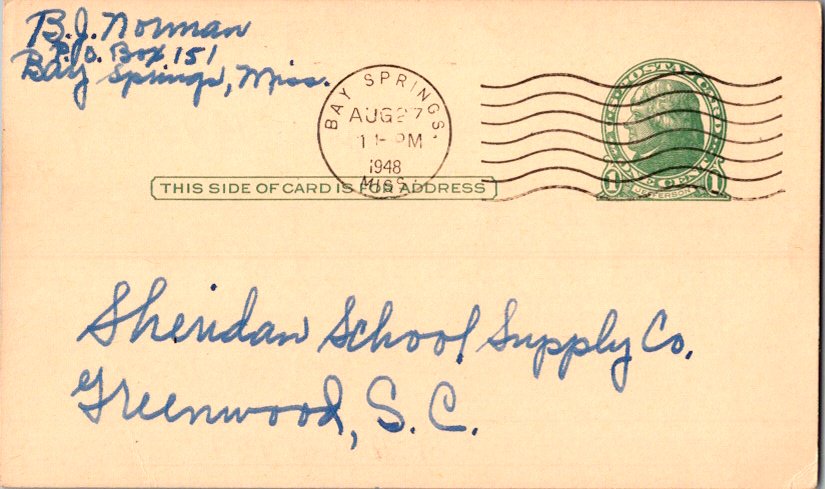 B.J. Norman
P.O. Box 151
Bay Springs, Miss.
BAY SPRINGS.
AUG 27
PM
1948
MISS.
U.S. POSTAL CARD
1 CENT 1
JEFFERSON
THIS SIDE OF CARD IS FOR ADDRESS
Sheridan School Supply Co.
Greenwood, S.C.